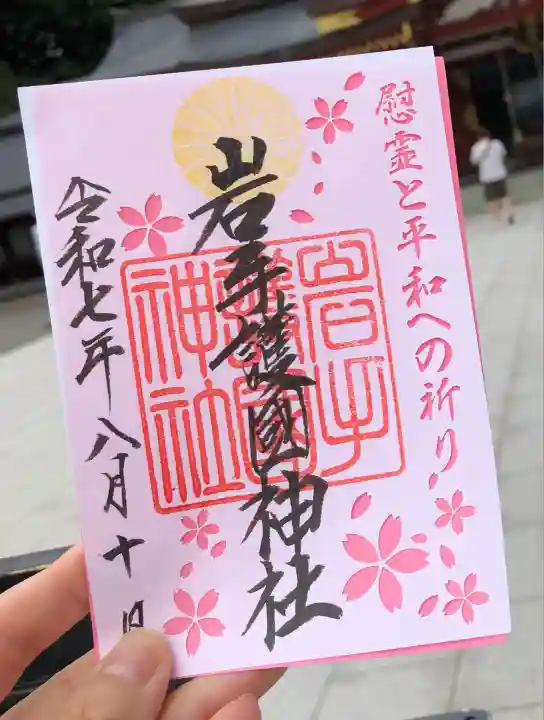 慰霊と平和への祈り
岩手護國神社
岩手
護國
神社
令和七年八月十日